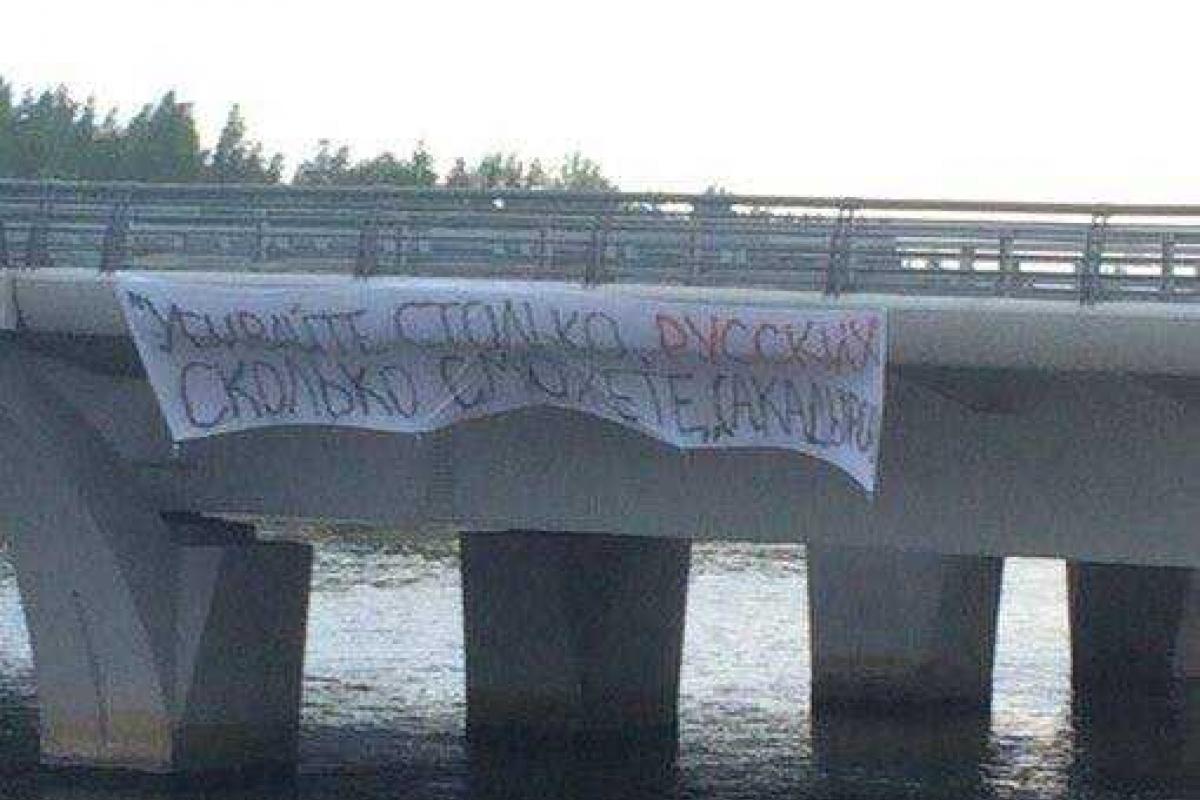 "Убивайте столько русских
сколько сможете" А.Кадыров